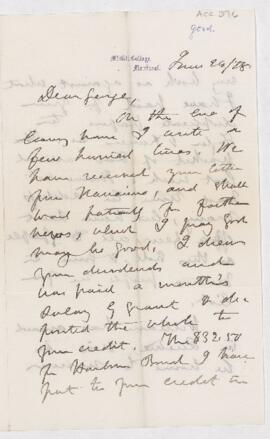 ACC 376
geod.
McGill College,
Montreal.
June 26/78
Dear George,
On the eve of
leaving home I write a
few hurried lines. We
have received your letter
from Nanaimo, and shall
wait patiently for further
news, which I pray God
may be good. I drew
your dividends and
was paid a month's
salary by Grant & de-
posited the whole to
your credit. The $32.50
for Harbour Bond I have
put to your credit in